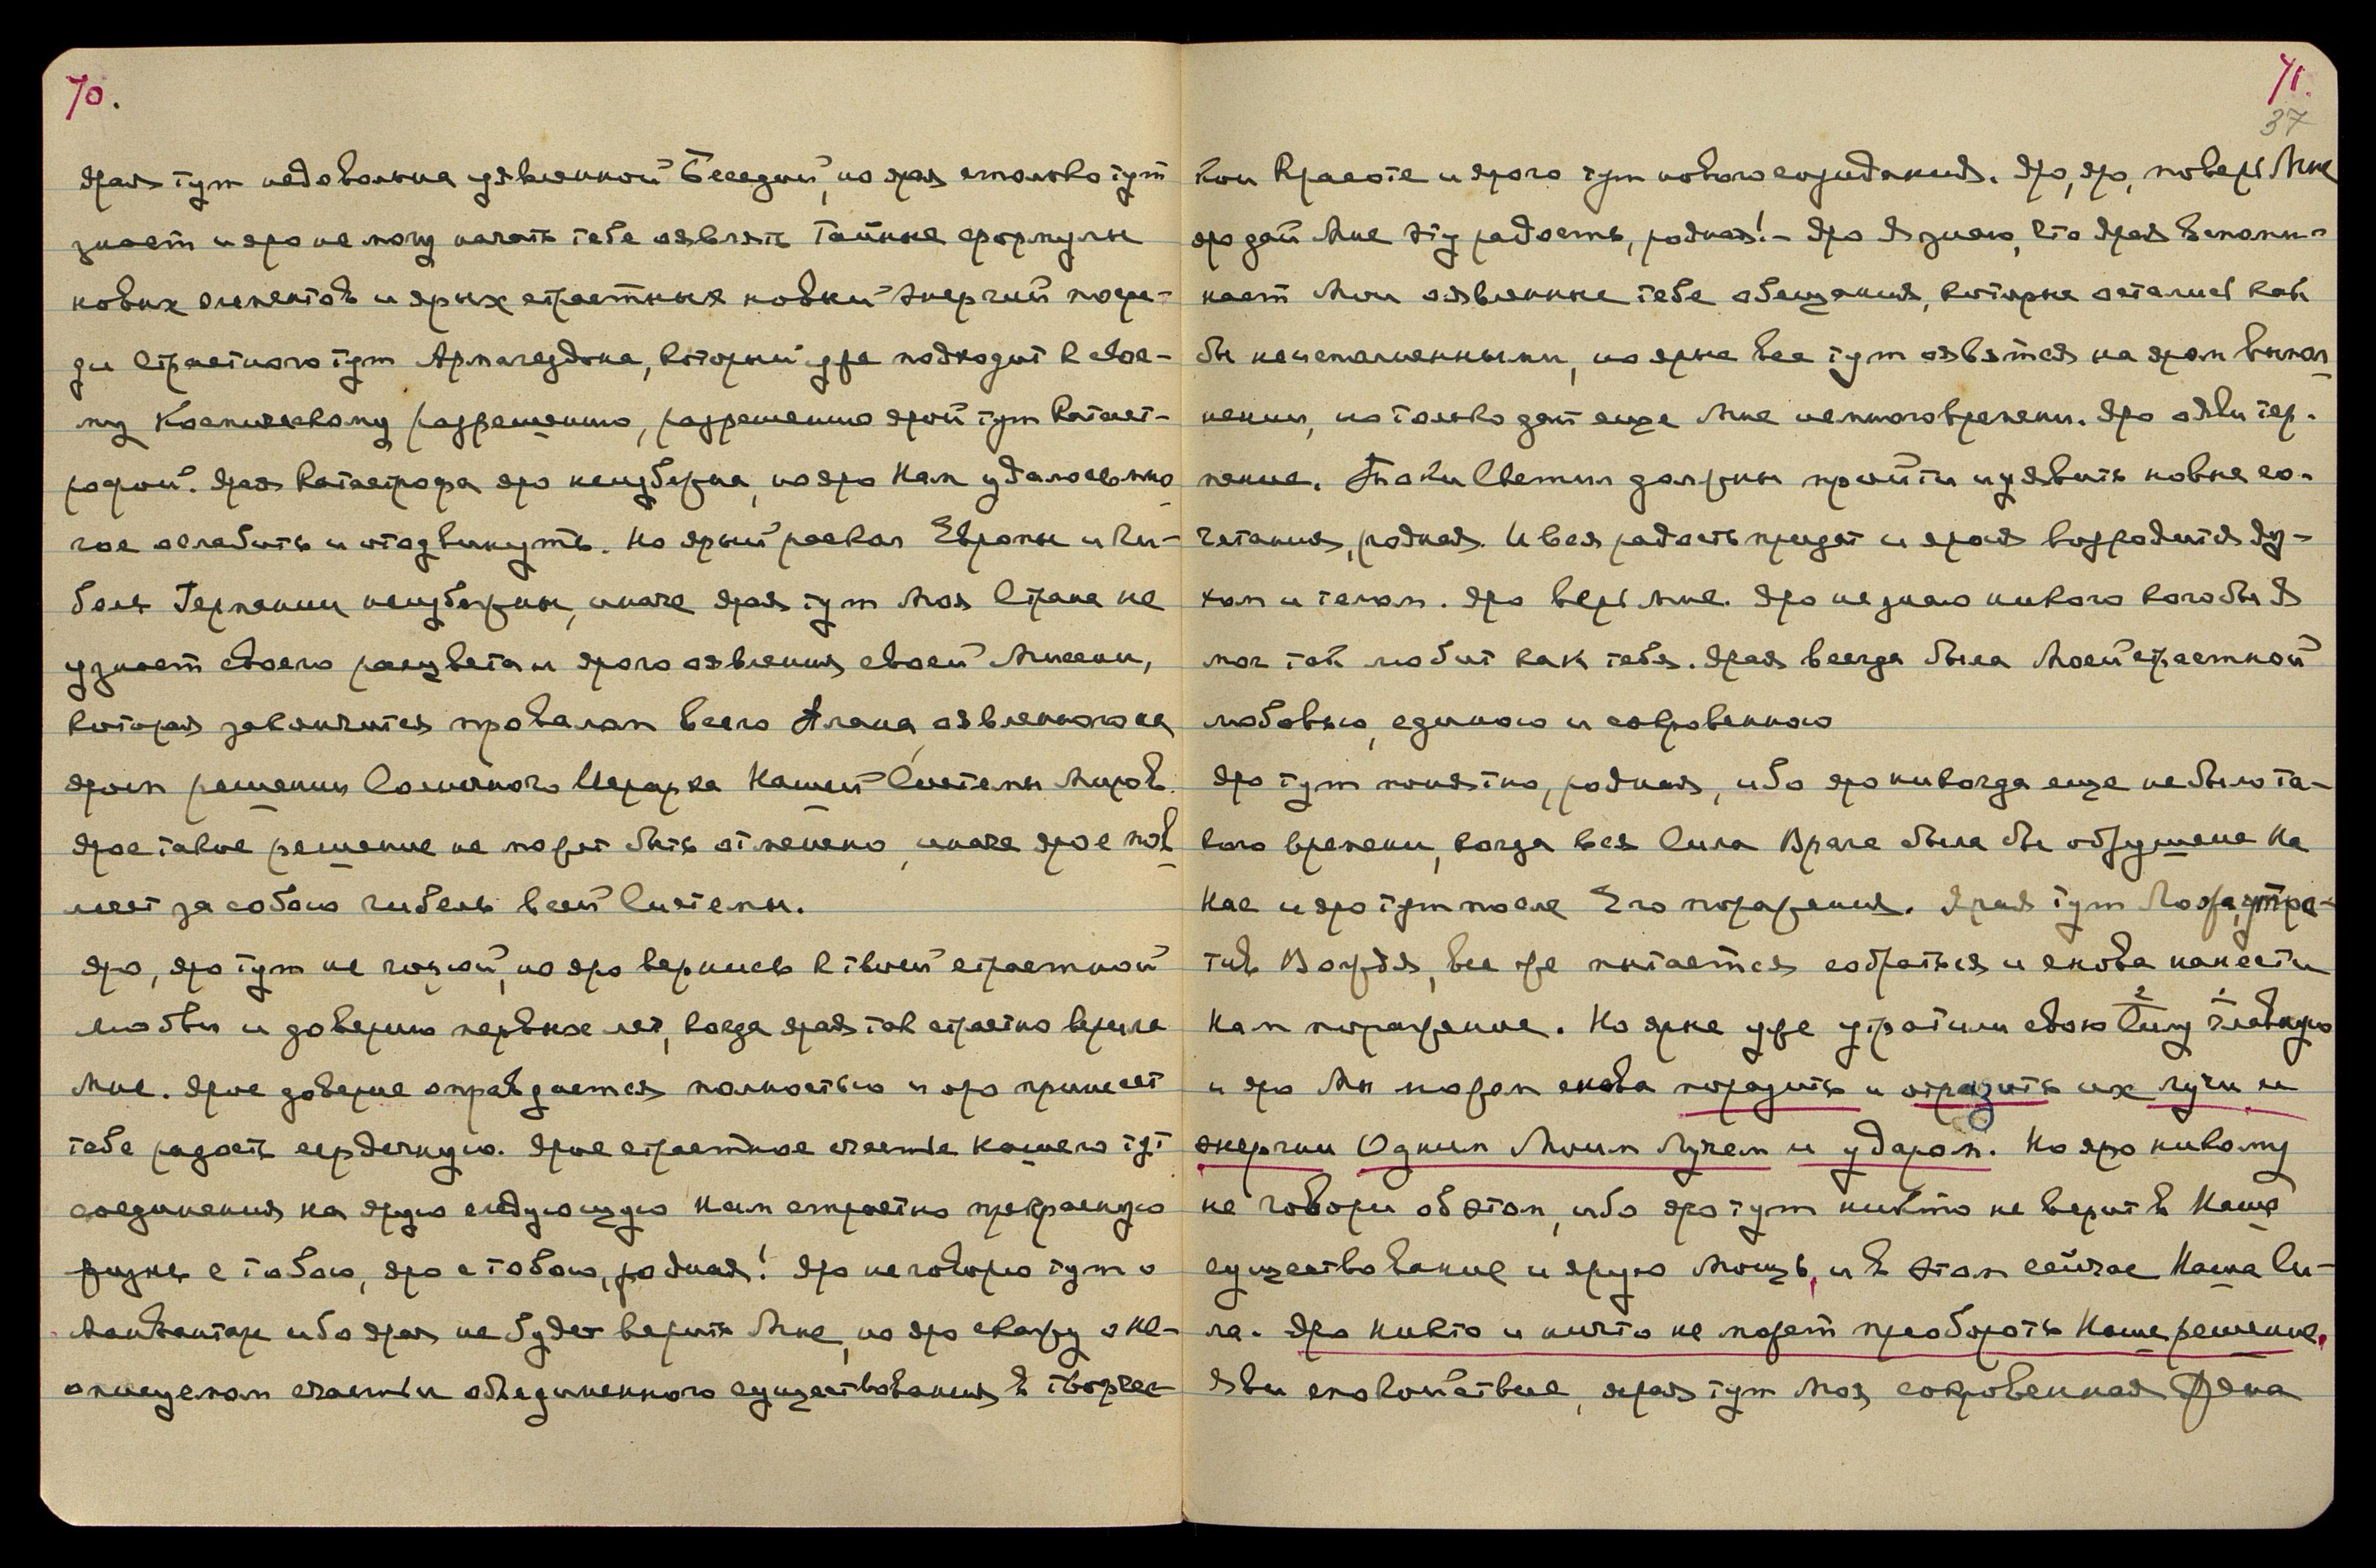 70.
Ярая тут недовольна уявленной Беседой, но ярая столько тут
знает и яро не могу начать тебе оявлять Тайные формулы
новых элементов и ярых страстных новых энергий посре-
ди страстного тут Армагеддона, который уже подходит к свое-
му Космическому разрешению, разрешению ярой тут катаст-
рофой. Ярая катастрофа яро неизбежна, но яро Нам удалось мно-
гое ослабить и отодвинуть. Но ярый раскол Европы и ги-
бель Германии неизбежны, иначе ярая тут Моя Страна не
узнает своего расцвета и ярого оявления своей Миссии,
которая закончится провалом всего Плана, оявленного на
яром решении Солнечного Иерарха Нашей Системы Миров.
Ярое такое решение не может быть отменено, иначе ярое пов-
лечет за собою гибель всей Системы.
Яро, яро тут не тоскуй, но яро вернись к твоей страстной
любви и доверию первых лет, когда ярая так страстно верила
Мне. Ярое доверие оправдается полностью и яро принесет
тебе радость сердечную. Ярое страстное счастье Нашего тут
соединения на ярую следующую Нам страстно прекрасную
жизнь с тобою, яро с тобою, родная! Яро не говорю тут о
Манвантаре ибо ярая не будет верить Мне, но яро скажу о не-
описуемом счастьи объединенного существования в творчес-
71.
37
кой Красоте и ярого тут нового созидания. Яро, яро, поверь Мне
яро дай Мне эту радость, родная! – Яро Я знаю, что ярая вспоми-
нает Мои оявленные тебе обещания, которые остались как
бы неисполненными, но ярые все тут оявятся на яром выпол-
нении, но только дай еще Мне немного времени. Яро ояви тер-
пение. Токи Светил должны пройти и уявить новые со-
четания, родная. И вся радость придет и ярая возродится ду-
хом и телом. Яро верь Мне. Яро не знаю никого кого бы Я
мог так любить как тебя. Ярая всегда была Моей страстной
любовью, единою и сокровенною
Яро тут понятно, родная, ибо яро никогда еще не было та-
кого времени, когда вся Сила Врага была бы обрушена на
Нас и яро тут после Его поражения. Ярая тут Ложа, утра-
тив Вождя, все же пытается собраться и снова нанести
Нам поражение. Но ярые уже утратили свою 2 Силу 1 главную
и яро Мы можем снова поразить и отразить их лучи и
энергии Одним Моим Лучем и ударом. Но яро никому
не говори об этом, ибо яро тут никто не верит в Наше
существование и ярую Мощь, и в этом сейчас Наша Си-
ла. Яро никто и ничто не может преобороть Наше решение.
Яви спокойствие, ярая тут Моя сокровенная Жена